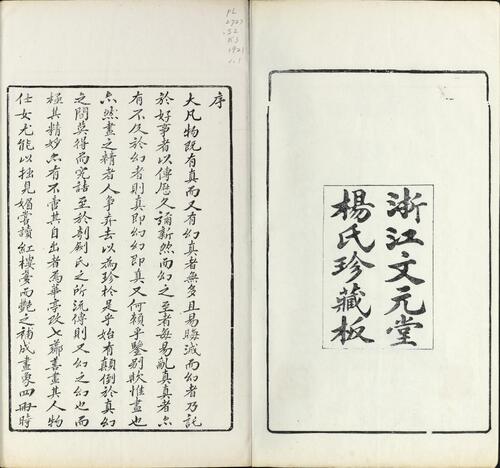 浙江文元堂
楊氏珍藏板
PL
2727
.S2
1921
v.1
序
大凡物既有真而又有幻真者無多且易晦滅而幻者乃託
於好事者以傳歷久彌新然而幻之至者每易亂真真者亦
有不及於幻者則真即幻幻即真又何賴乎鑒別歟惟畫也
亦然畫之精者人爭弃去以為珍於是乎始有顛倒於真幻
之間莫得而究詰至於剞劂氏之所流傳則又幻之幻也而
極其精妙亦有不啻其自出者為華亭改七薌善畫其人物
仕女尤能以拙見媚嘗讀紅樓夢而艷之補成畫象四冊時